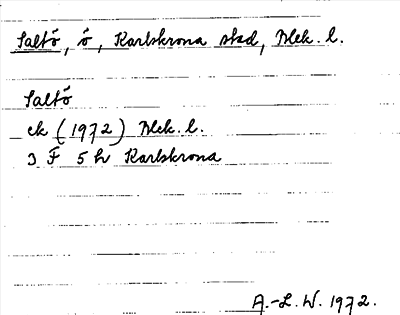 Saltö, ö, Karlskrona stad, Blek. l.
Saltö
ek (1972) Blek. l.
3 F 5 h Karlskrona
A.-L. W. 1972.